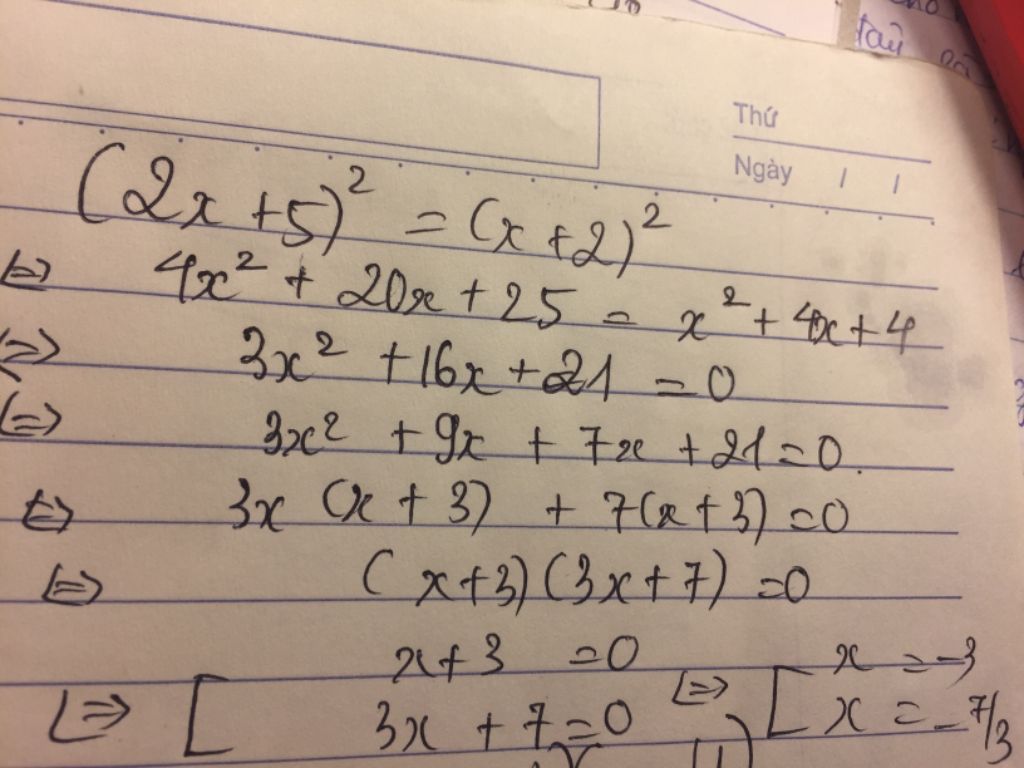 tải
Thứ
Ngày / /
(2x + 5)² = (x + 2)²
⇔ 4x² + 20x + 25 = x² + 4x + 4
⇔ 3x² + 16x + 21 = 0
⇔ 3x² + 9x + 7x + 21 = 0.
⇔ 3x (x + 3) + 7(x + 3) = 0
⇔ (x + 3)(3x + 7) = 0
⇔ [ x + 3 = 0 ⇔ [ x = -3
3x + 7 = 0 x = -7/3